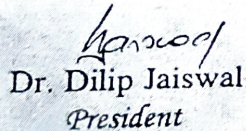 Dr. Dilip Jaiswal
President